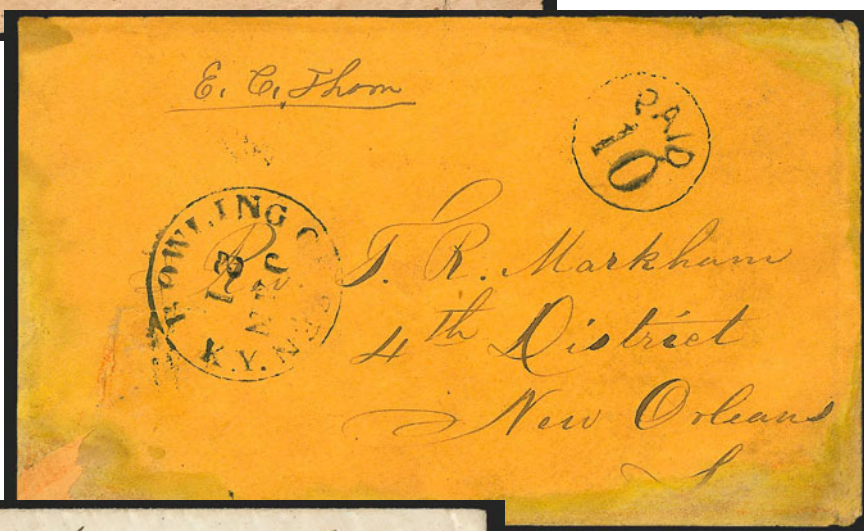 E. C. Thom
PAID
10
BOWLING GREEN
18
K.Y.
Rev. T. R. Markham
4th District
New Orleans